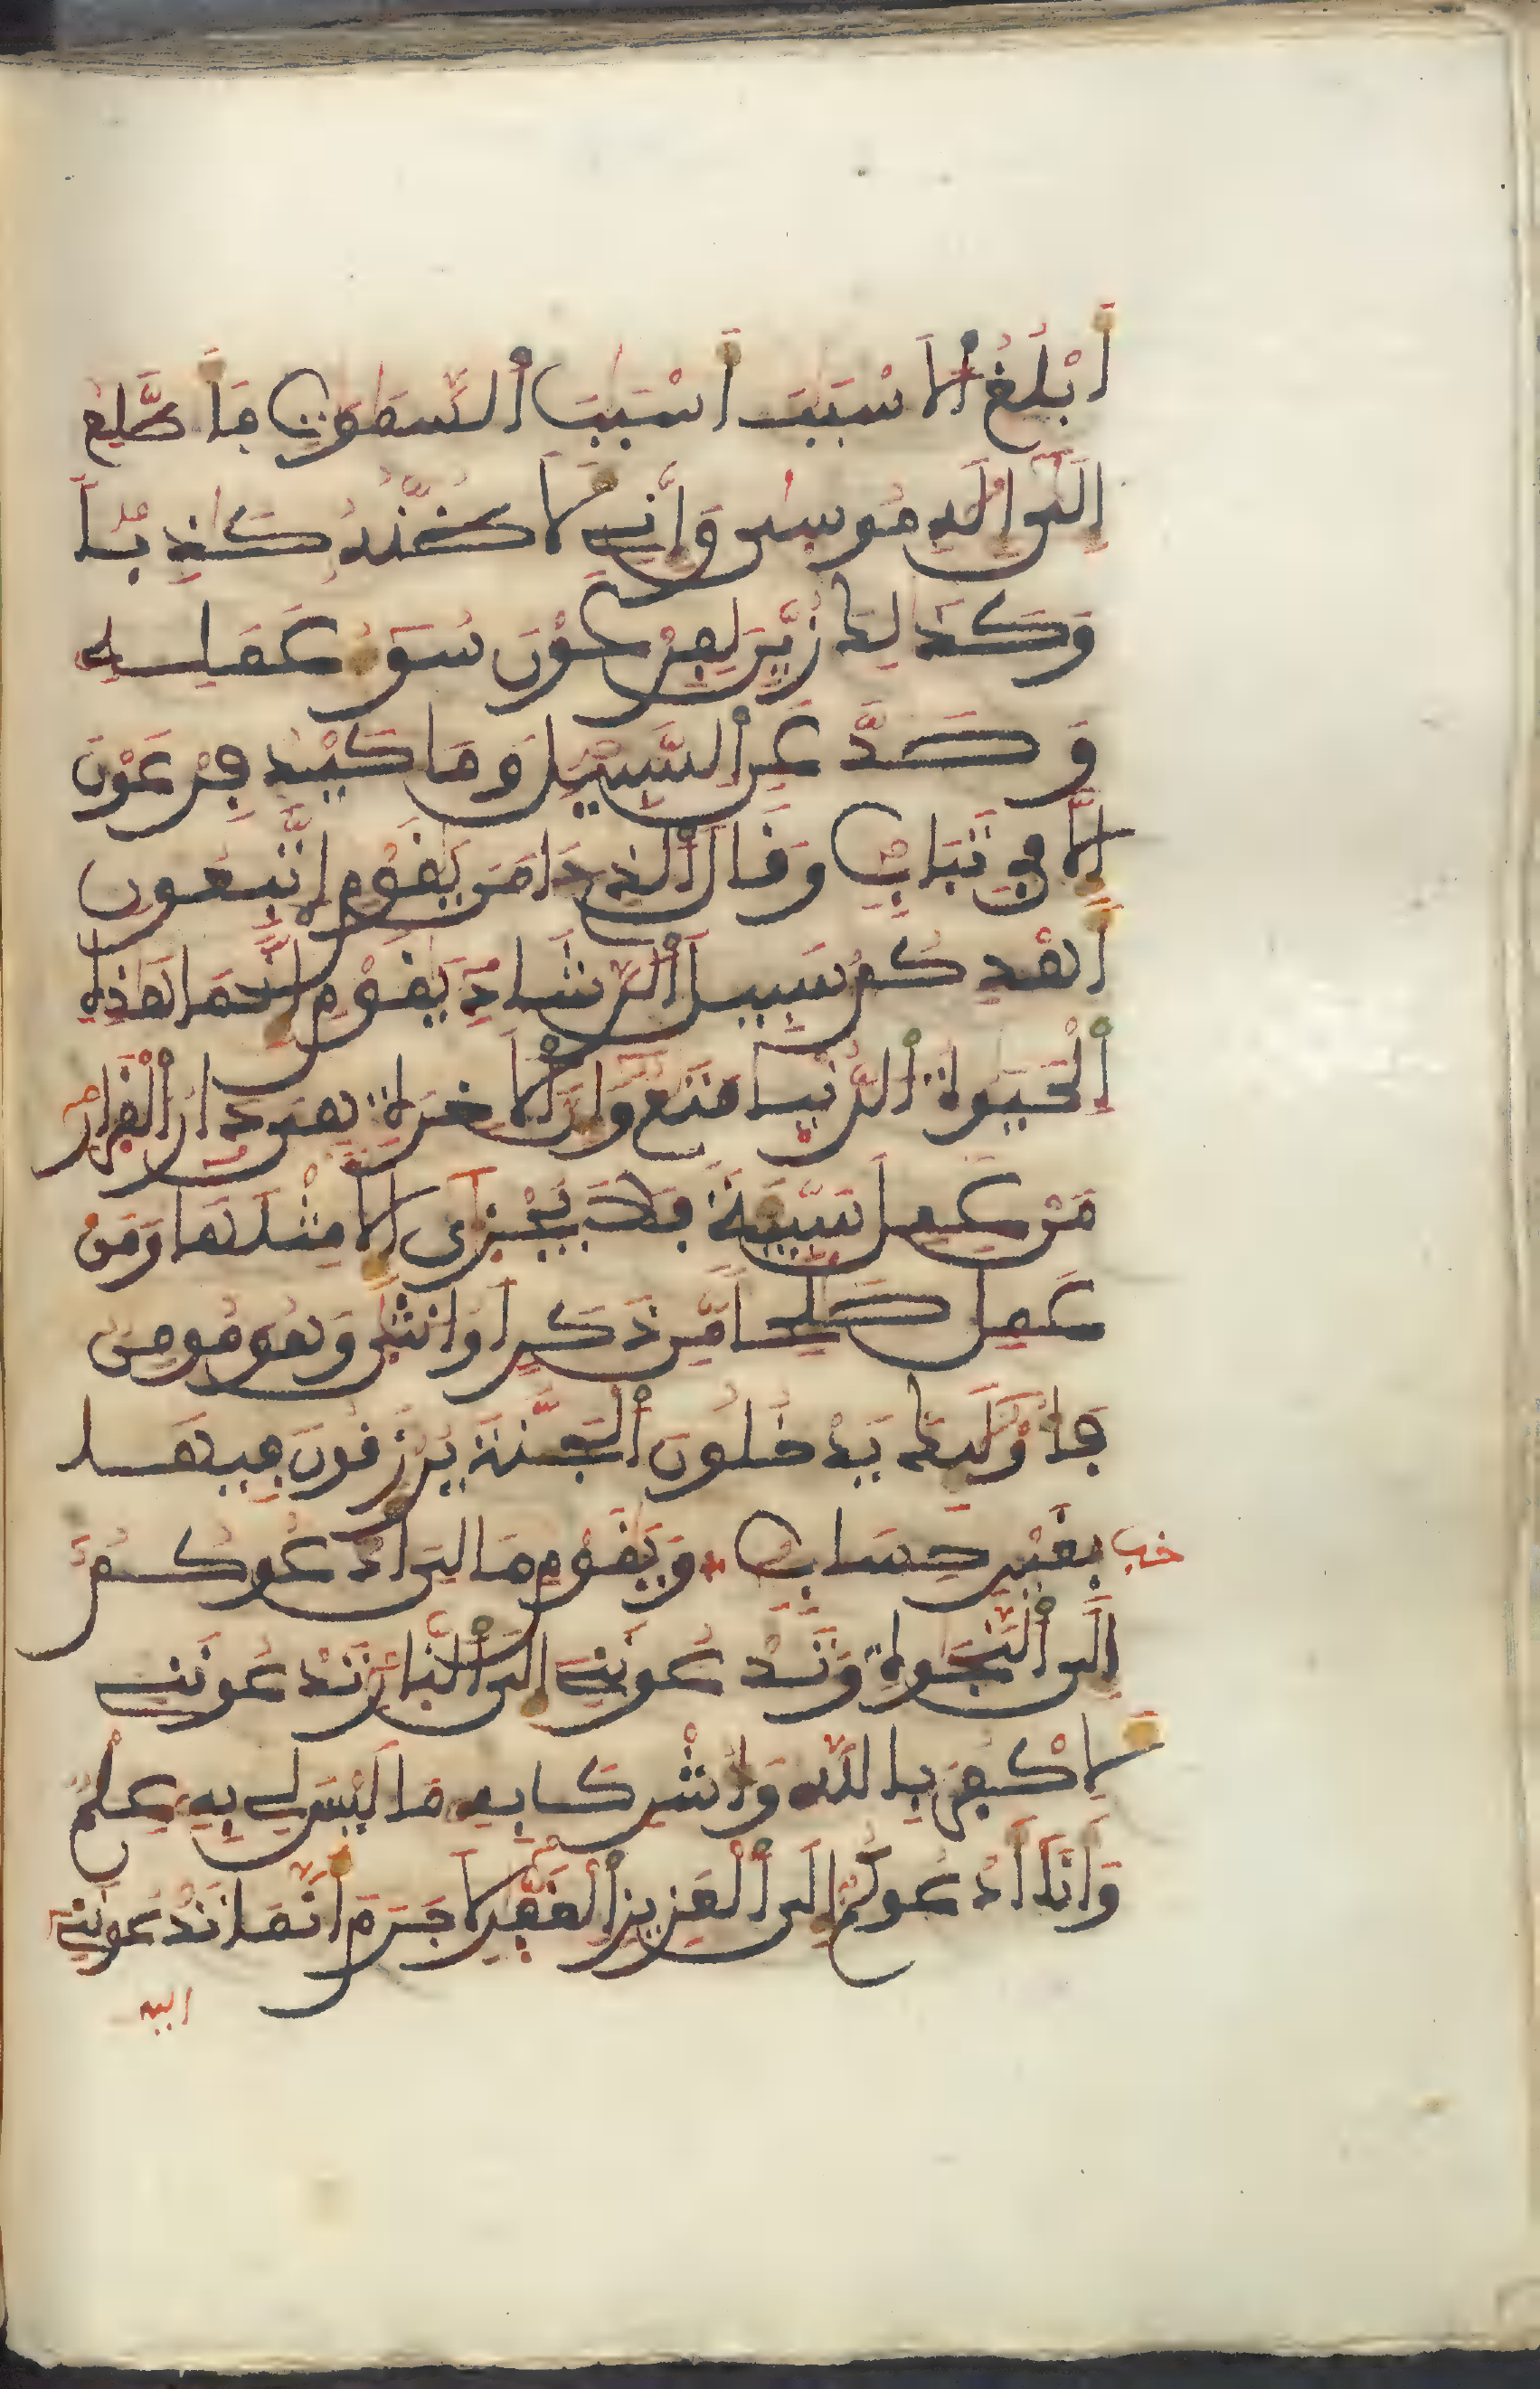 أَبْلُغُ اُ۬لَاسْبَٰبَ أَسْبَٰبَ اَ۬لسَّمَٰوَٰتِ فَأَطَّلِعُ
إِلَىٰٓ إِلَٰهِ مُوسىٰ وَإِنِّے لَأَظُنُّهُۥ كَٰذِباً
وَكَذَٰلِكَ زُيِّنَ لِفِرْعَوْنَ سُوٓءُ عَمَلِهِۦ
وَصَدَّ عَنِ اِ۬لسَّبِيلِ وَمَا كَيْدُ فِرْعَوْنَ
إِلَّا فِے تَبَابٖ وَقَالَ اَ۬لذِےٓ ءَامَنَ يَٰقَوْمِ اِ۪تَّبِعُونِ
أَهْدِكُمْ سَبِيلَ اَ۬لرَّشَادِ يَٰقَوْمِ إِنَّمَا هَٰذِهِ
اِ۬لْحَيَوٰةُ اُ۬لدُّنْيَا مَتَٰعٞ وَإِنَّ اَ۬لَاخِرَةَ هِيَ دَارُ اُ۬لْقَرَارِ
مَنْ عَمِلَ سَيِّئَةٗ فَلَا يُجْزَىٰٓ إِلَّا مِثْلَهَا وَمَنْ
عَمِلَ صَٰلِحاٗ مِّن ذَكَرٍ اَوُ ا۟نثىٰ وَهُوَ مُومِنٞ
فَأُوْلَٰٓئِكَ يَدْخُلُونَ اَ۬لْجَنَّةَ يُرْزَقُونَ فِيهَا
بِغَيْرِ حِسَابٖ وَيَٰقَوْمِ مَا لِيَ أَدْعُوكُمُۥٓ
إِلَى اَ۬لنَّجَوٰةِ وَتَدْعُونَنِےٓ إِلَى اَ۬لنّارِ تَدْعُونَنِے
لِأَكْفُرَ بِاللَّهِ وَأُشْرِكَ بِهِۦ مَا لَيْسَ لِے بِهِۦ عِلْمٞ
وَأَنَآ أَدْعُوكُمُۥٓ إِلَى اَ۬لْعَزِيزِ اِ۬لْغَفّٰرِ لَا جَرَمَ أَنَّمَا تَدْعُونَنِےٓ
إليه